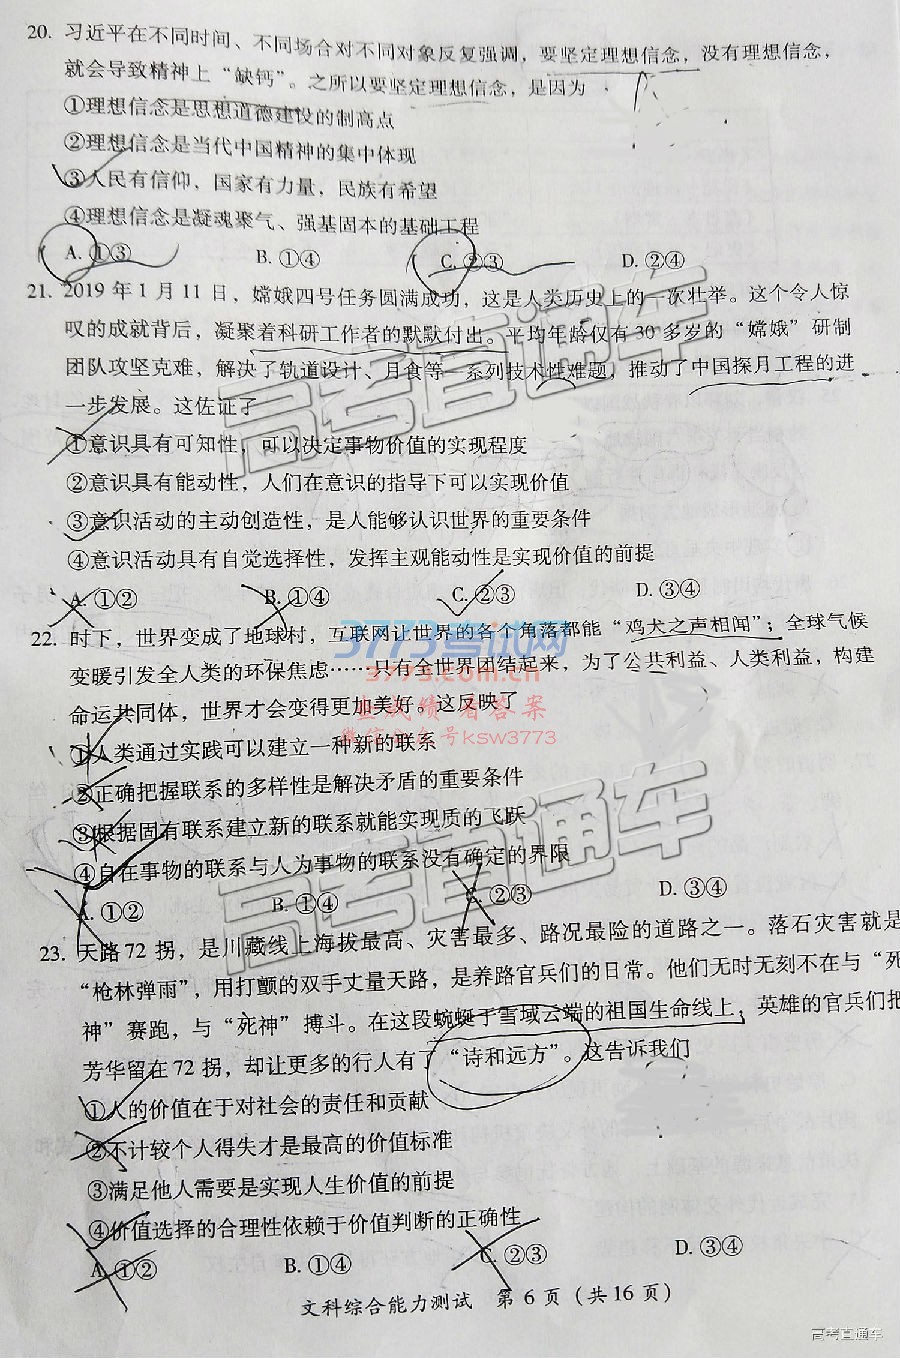 20. 习近平在不同时间、不同场合对不同对象反复强调，要坚定理想信念，没有理想信念，
就会导致精神上“缺钙”。之所以要坚定理想信念，是因为
①理想信念是思想道德建设的制高点
②理想信念是当代中国精神的集中体现
③人民有信仰、国家有力量，民族有希望
④理想信念是凝魂聚气、强基固本的基础工程
A. ①③ B. ①④ C. ②③ D. ②④
21. 2019 年 1 月 11 日，嫦娥四号任务圆满成功，这是人类历史上的一次壮举。这个令人惊
叹的成就背后，凝聚着科研工作者的默默付出。平均年龄仅有 30 多岁的“嫦娥”研制
团队攻坚克难，解决了轨道设计、月食等一系列技术性难题，推动了中国探月工程的进
一步发展。这佐证了
①意识具有可知性，可以决定事物价值的实现程度
②意识具有能动性，人们在意识的指导下可以实现价值
③意识活动的主动创造性，是人能够认识世界的重要条件
④意识活动具有自觉选择性，发挥主观能动性是实现价值的前提
A. ①② B. ①④ C. ②③ D. ③④
22. 时下，世界变成了地球村，互联网让世界的各个角落都能“鸡犬之声相闻”；全球气候
变暖引发全人类的环保焦虑……只有全世界团结起来，为了公共利益、人类利益，构建
命运共同体，世界才会变得更加美好。这反映了
①人类通过实践可以建立一种新的联系
②正确把握联系的多样性是解决矛盾的重要条件
③根据固有联系建立新的联系就能实现质的飞跃
④自在事物的联系与人为事物的联系没有确定的界限
A. ①② B. ①④ C. ②③ D. ③④
23. 天路 72 拐，是川藏线上海拔最高、灾害最多、路况最险的道路之一。落石灾害就是
“枪林弹雨”，用打颤的双手丈量天路，是养路官兵们的日常。他们无时无刻不在与“死
神”赛跑，与“死神”搏斗。在这段蜿蜒于雪域云端的祖国生命线上，英雄的官兵们把
芳华留在 72 拐，却让更多的行人有了“诗和远方”。这告诉我们
①人的价值在于对社会的责任和贡献
②不计较个人得失才是最高的价值标准
③满足他人需要是实现人生价值的前提
④价值选择的合理性依赖于价值判断的正确性
A. ①② B. ①④ C. ②③ D. ③④
文科综合能力测试 第 6 页（共 16 页）
高考直通车
高考直通车
3773考试网
3773.com.cn
查成绩 看答案
微信公众号ksw3773
高考直通车